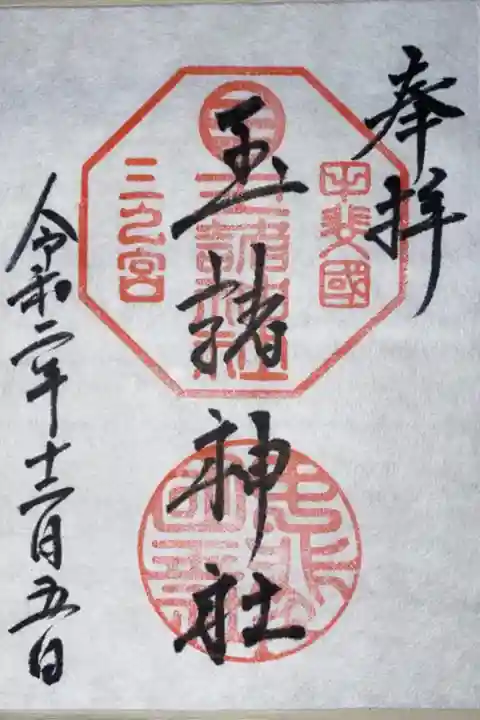 奉拝
甲斐國
玉諸神社
玉諸神社
三之宮
令和二年十二月五日